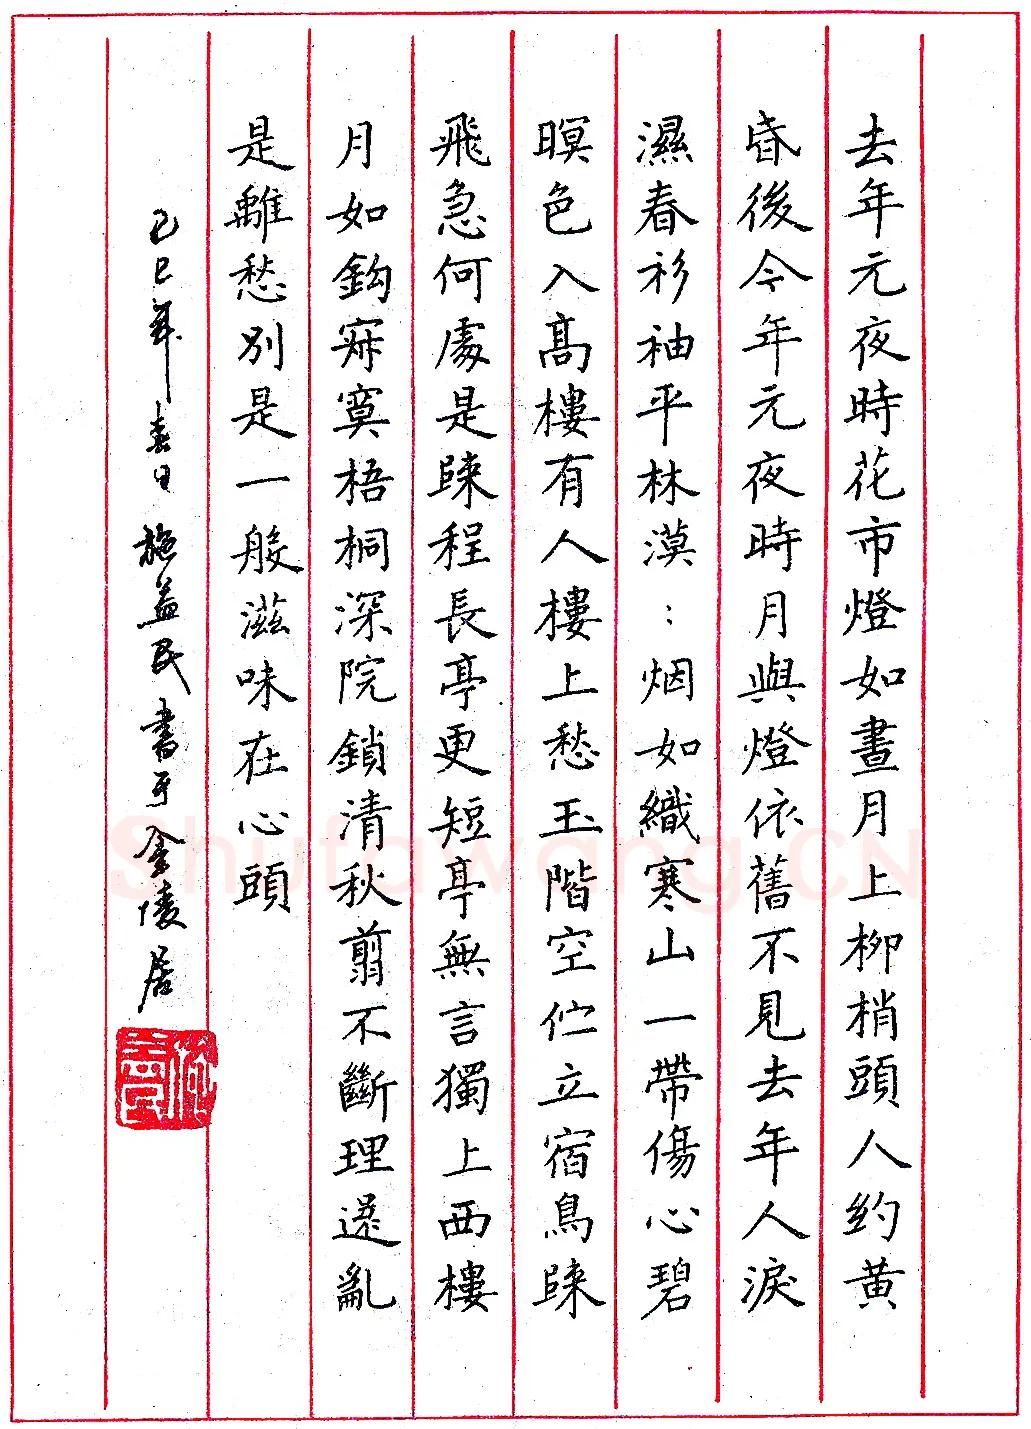 去年元夜時花市燈如晝月上柳梢頭人約黄
昏後今年元夜時月與燈依舊不見去年人淚
濕春衫袖平林漠：烟如織寒山一帶傷心碧
暝色入高樓有人樓上愁玉階空伫立宿鳥歸
飛急何處是歸程長亭更短亭無言獨上西樓
月如鈎寂寞梧桐深院鎖清秋翦不斷理還亂
是離愁別是一般滋味在心頭
乙巳年春日施益民書于金陵居
Shufawang.CN